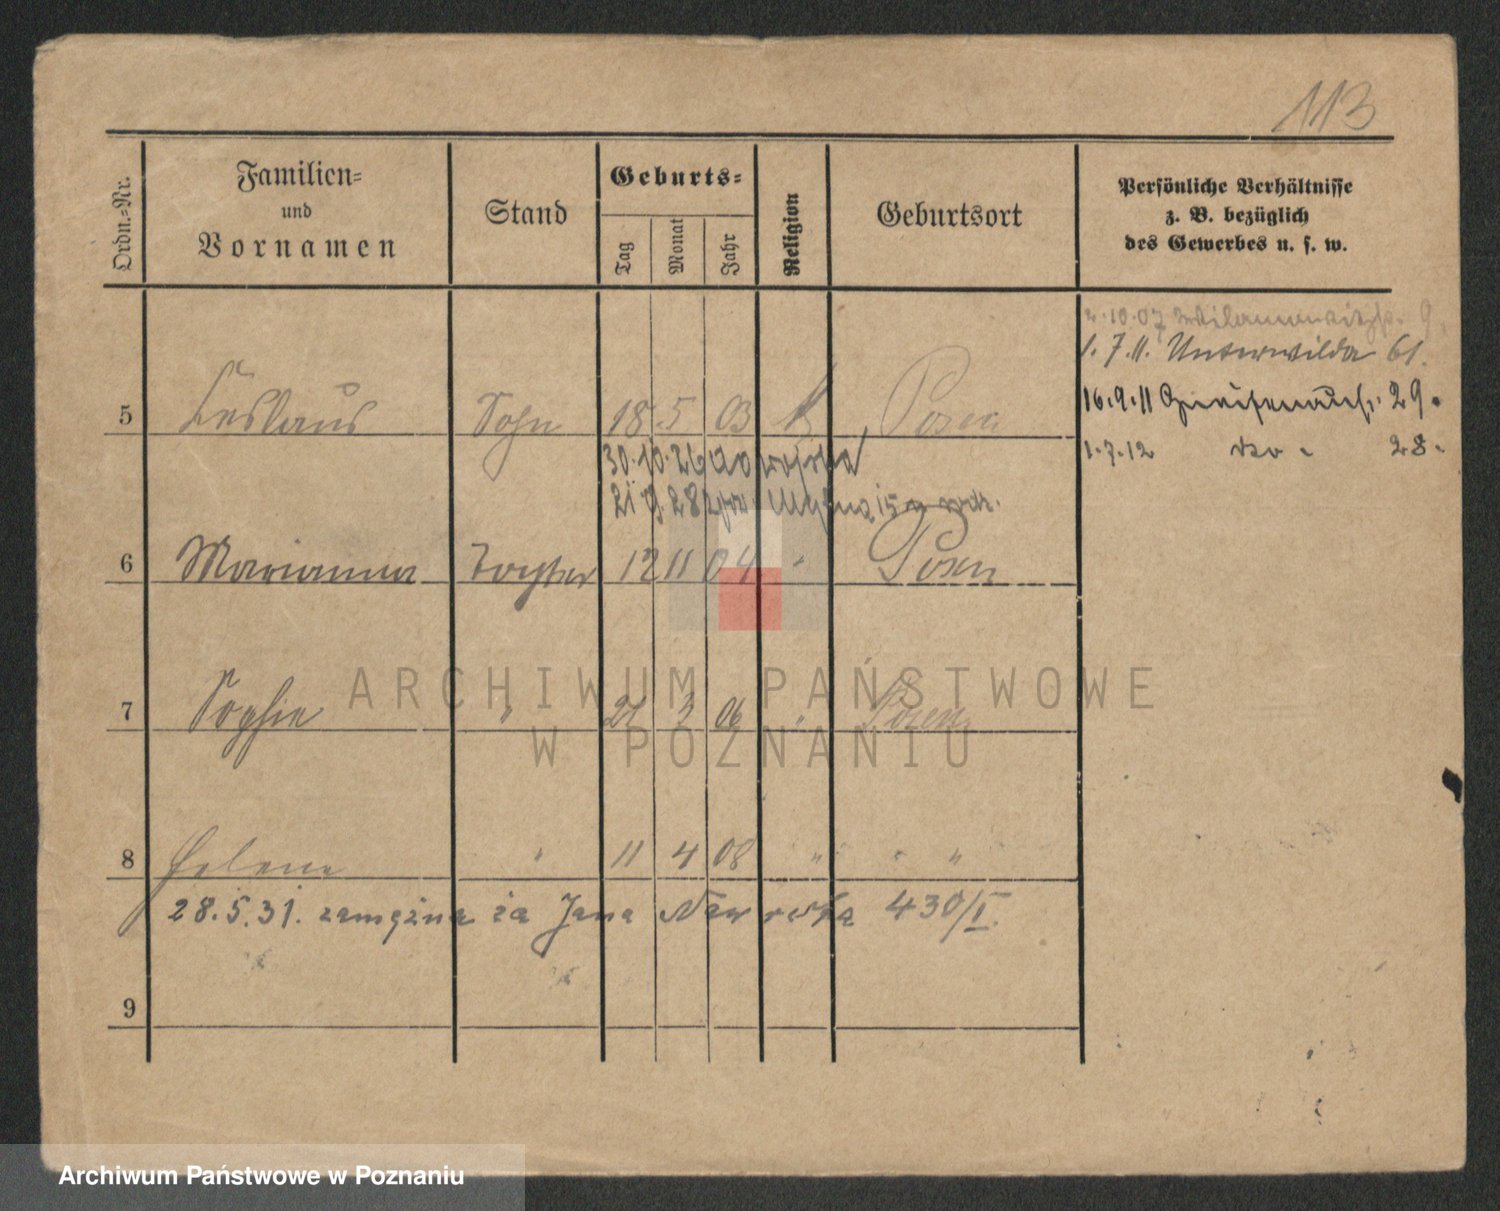 113
Ordn.-Nr.
Familien-
und
Vornamen
Stand
Geburts-
Tag
Monat
Jahr
Religion
Geburtsort
Persönliche Verhältnisse
z. B. bezüglich
des Gewerbes u. s. w.
2.10.07 9
1.7.11. Unterwilda 61.
16.9.11 29.
1.7.12 do - 28.
5 Leslaus Sohn 18 5 03 k Posen
30.10.26
21 9 28
6 Marianna Tochter 12 11 04 " Posen
7 Sophie " 21 3 06 " Posen
8 Helene " 11 4 08 " " "
28.5.31. zamężna za Jana 430/I.
9
ARCHIWUM PAŃSTWOWE
W POZNANIU
Archiwum Państwowe w Poznaniu